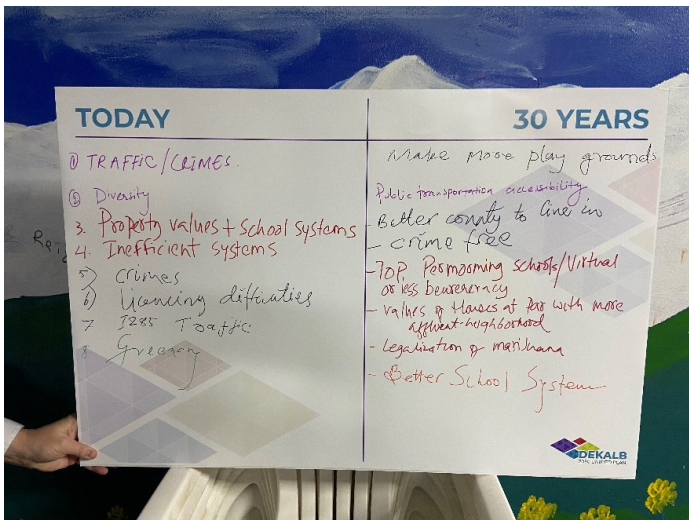 TODAY
1) TRAFFIC/CRIMES.
2) Diversity
3. Property values + school systems
4. Inefficient systems
5) Crimes
6) Licencing difficuties
7 I285 Traffic
8
30 YEARS
Make more play grounds
Public transportation accessibility
- Better county to live in
- crime free
- Top Permorming schools/Virtual
or less beurereracy
- values of Houses at par with more
affluent-neighborhood
- legalization of marihana
- Better School System
DEKALB